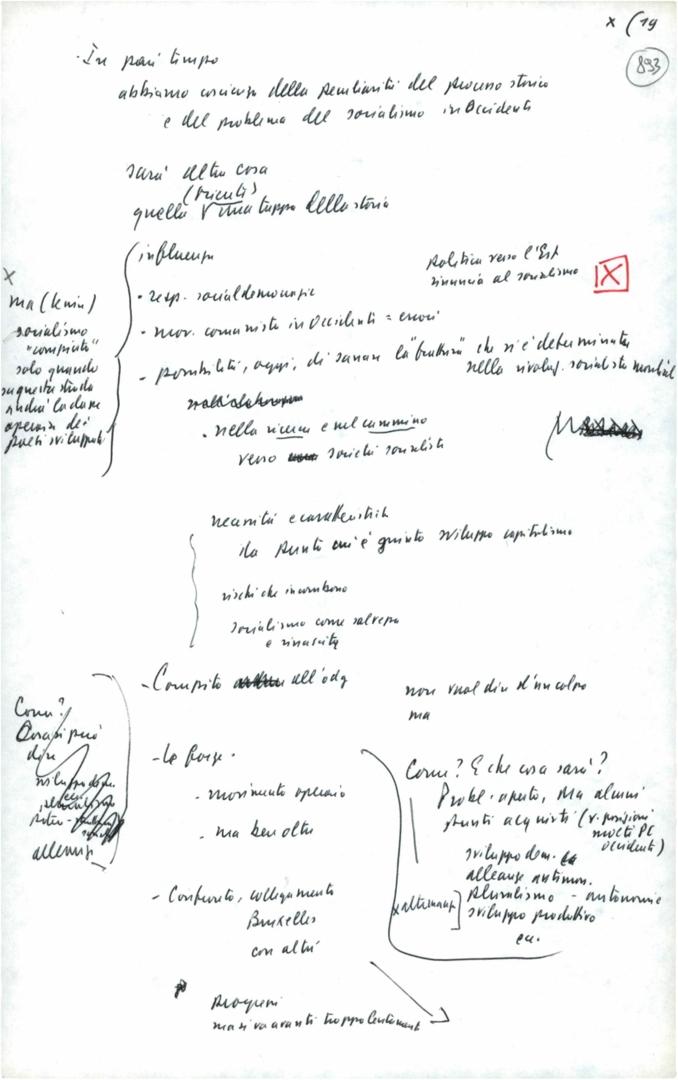 x (19
893
- In pari tempo
abbiamo coscienza della peculiarità del processo storico
e del problema del socialismo in Occidente
sarà altra cosa
(vicenti)
quella una tappa della storia
influenza
politica verso l'Est
rinuncia al socialismo
X
• resp. socialdemocrazie
• mov. comunista in Occidente = errori
- possibilità, oggi, di sanare la "frattura" che si è determinata
nella rivoluz. socialista mondiale
• nella ricerca e nel cammino
verso società socialista
x
ma (Lenin)
socialismo
"compiuto"
solo quando
su questa strada
andrà la classe
operaia dei
paesi sviluppati
necessità e caratteristiche
da punto cui è giunto sviluppo capitalismo
rischi che incombono
socialismo come salvezza
e rinascita
- Compito all'odg
non vuol dire d'un colpo
ma
Come?
Cosa si può
dire
sviluppo dem.
pluralismo
alleanze
- Le forze -
- movimento operaio
- ma ben oltre
- Confronto, collegamento
Bruxelles
con altri
Come? E che cosa sarà?
Probl. aperto, ma alcuni
punti acquisiti (v. posizioni
molti PC
occidenti)
sviluppo dem.
alleanze antimon.
x alternanza
pluralismo - autonomie
sviluppo produttivo
ecc.
progressi
ma si va avanti troppo lentamente